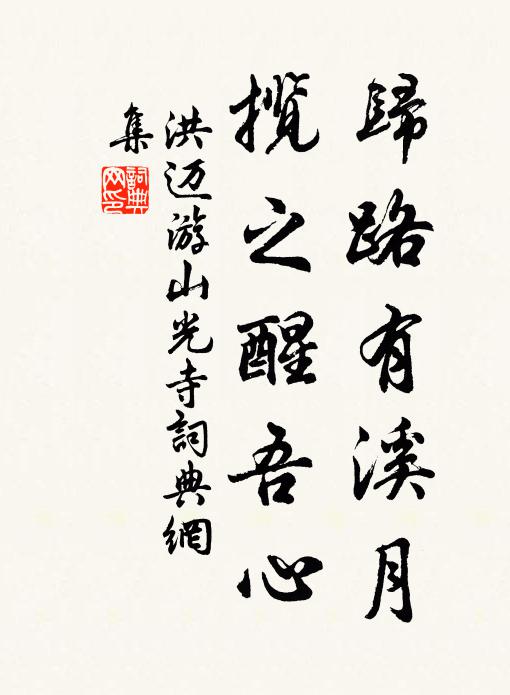 歸路有溪月
攬之醒吾心
洪迈游山光寺詞典網
集
詞典
网印